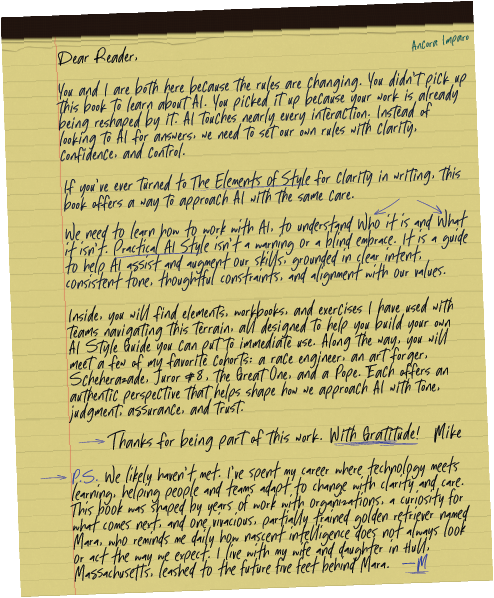 Ancora Imparo
Dear Reader,
You and I are both here because the rules are changing. You didn't pick up
this book to learn about AI. You picked it up because your work is already
being reshaped by it. AI touches nearly every interaction. Instead of
looking to AI for answers, we need to set our own rules with clarity,
confidence, and control.
If you've ever turned to The Elements of Style for clarity in writing, this
book offers a way to approach AI with the same care.
We need to learn how to work with AI, to understand Who it is and What
it isn't. Practical AI Style isn't a warning or a blind embrace. It is a guide
to help AI assist and augment our skills, grounded in clear intent,
consistent tone, thoughtful constraints, and alignment with our values.
Inside, you will find elements, workbooks, and exercises I have used with
teams navigating this terrain, all designed to help you build your own
AI Style Guide you can put to immediate use. Along the way, you will
meet a few of my favorite cohorts: a race engineer, an art forger,
Scheherazade, Juror #8, the Great One, and a Pope. Each offers an
authentic perspective that helps shape how we approach AI with tone,
judgment, assurance, and trust.
Thanks for being part of this work. With Gratitude! Mike
P.S. We likely haven't met. I've spent my career where technology meets
learning, helping people and teams adapt to change with clarity and care.
This book was shaped by years of work with organizations, a curiosity for
what comes next, and one vivacious, partially trained golden retriever named
Mara, who reminds me daily how nascent intelligence does not always look
or act the way we expect. I live with my wife and daughter in Hull,
Massachusetts, leashed to the future five feet behind Mara. —M